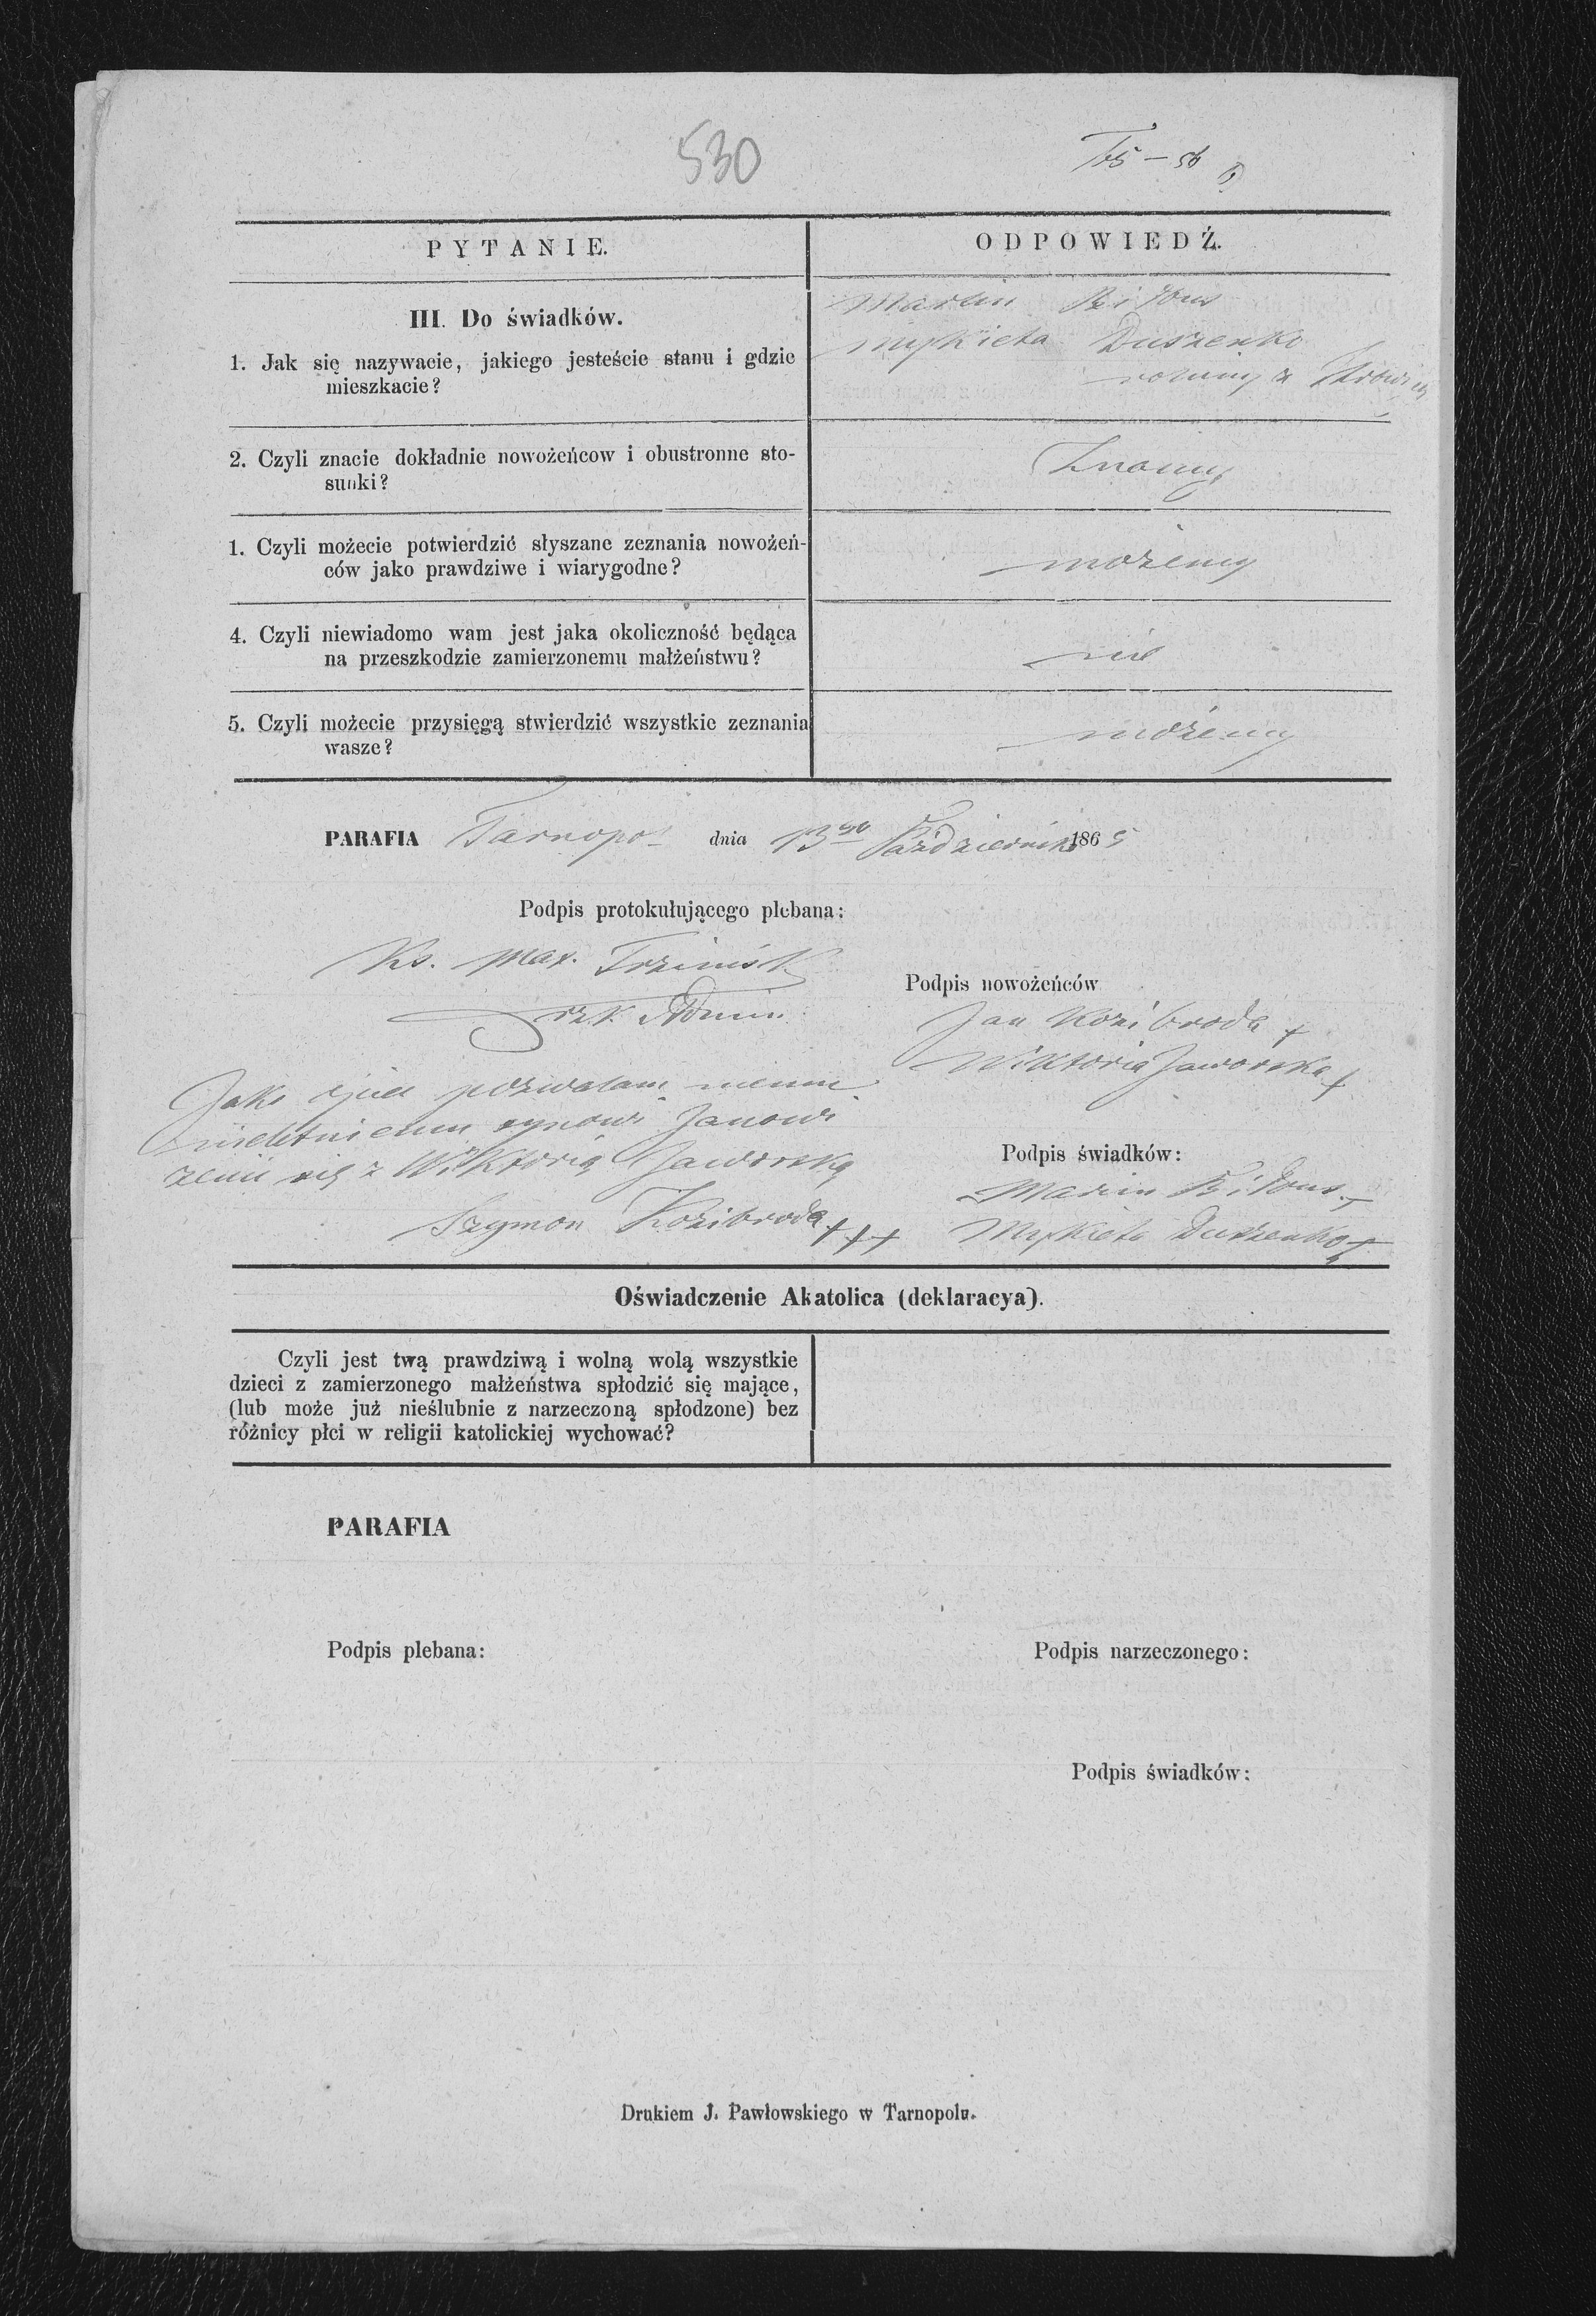 530
PYTANIE.
ODPOWIEDŹ.
III. Do świadków.
1. Jak się nazywacie, jakiego jesteście stanu i gdzie
mieszkacie?
Marcin Biłous
Mykieta Duszenko
rolnicy z
2. Czyli znacie dokładnie nowożeńcow i obustronne sto-
sunki?
Znamy
1. Czyli możecie potwierdzić słyszane zeznania nowożeń-
ców jako prawdziwe i wiarygodne?
możemy
4. Czyli niewiadomo wam jest jaka okoliczność będąca
na przeszkodzie zamierzonemu małżeństwu?
nie
5. Czyli możecie przysięgą stwierdzić wszystkie zeznania
wasze?
możemy
PARAFIA Tarnopol dnia 13go Październik 1865
Podpis protokułującego plebana:
Ks. Max.
Admin.
Podpis nowożeńców
Jan Kozibroda +
Wiktoria Jaworska +
Jako ojciec pozwalam memu
nieletniemu synowi Janowi
żenić się z Wiktorią Jaworską
Szymon Kozibroda +++
Podpis świadków:
Marcin Biłous +
Mykieta Duszenko +
Oświadczenie Akatolica (deklaracya).
Czyli jest twą prawdziwą i wolną wolą wszystkie
dzieci z zamierzonego małżeństwa spłodzić się mające,
(lub może już nieślubnie z narzeczoną spłodzone) bez
różnicy płci w religii katolickiej wychować?
PARAFIA
Podpis plebana:
Podpis narzeczonego:
Podpis świadków:
Drukiem J. Pawłowskiego w Tarnopolu.